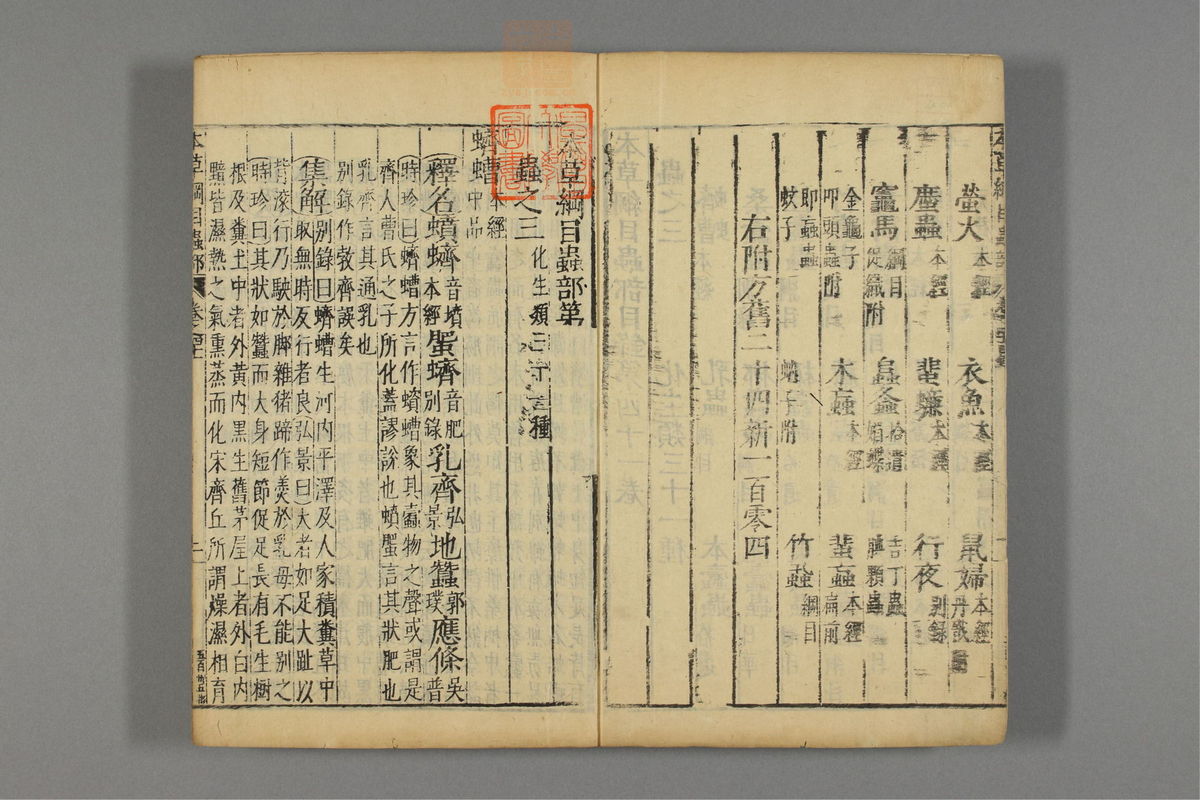 螢火 本經
衣魚 本經
鼠婦 本經
丹戩附
䗪蟲 本經
蜚蠊 本經
行夜 別錄
竈馬 綱目
促織附
䘀螽 拾遺
吉丁蟲
金龜子
叩頭蟲附
木蝱 本經
蜚蝱 本經
即蝱蟲
蚊子
蚋子附
竹蝨 綱目
右附方舊二十四新一百零四
本草綱目蟲部第
蟲之三 化生類三十一種
蠐螬 本經中品
釋名蟦蠐音墳本經蜰蠐音肥別錄乳齊弘景地蠶郭璞應條吳普
時珍曰蠐螬方言作蠀螬象其蠹物之聲或謂是
齊人曹氏之子所化蓋謬說也蟦蜰言其狀肥也
乳齊言其通乳也
別錄作敦齊誤矣
集解別錄曰蠐螬生河內平澤及人家積糞草中
取無時反行者良弘景曰大者如足大趾以
背滾行乃駛於脚雜猪蹄作羹於乳母不能別之
時珍曰其狀如蠶而大身短節促足長有毛生樹
根及糞土中者外黃內黑生舊茅屋上者外白內
黯皆濕熱之氣熏蒸而化宋齊丘所謂燥濕相育
本草綱目蟲部